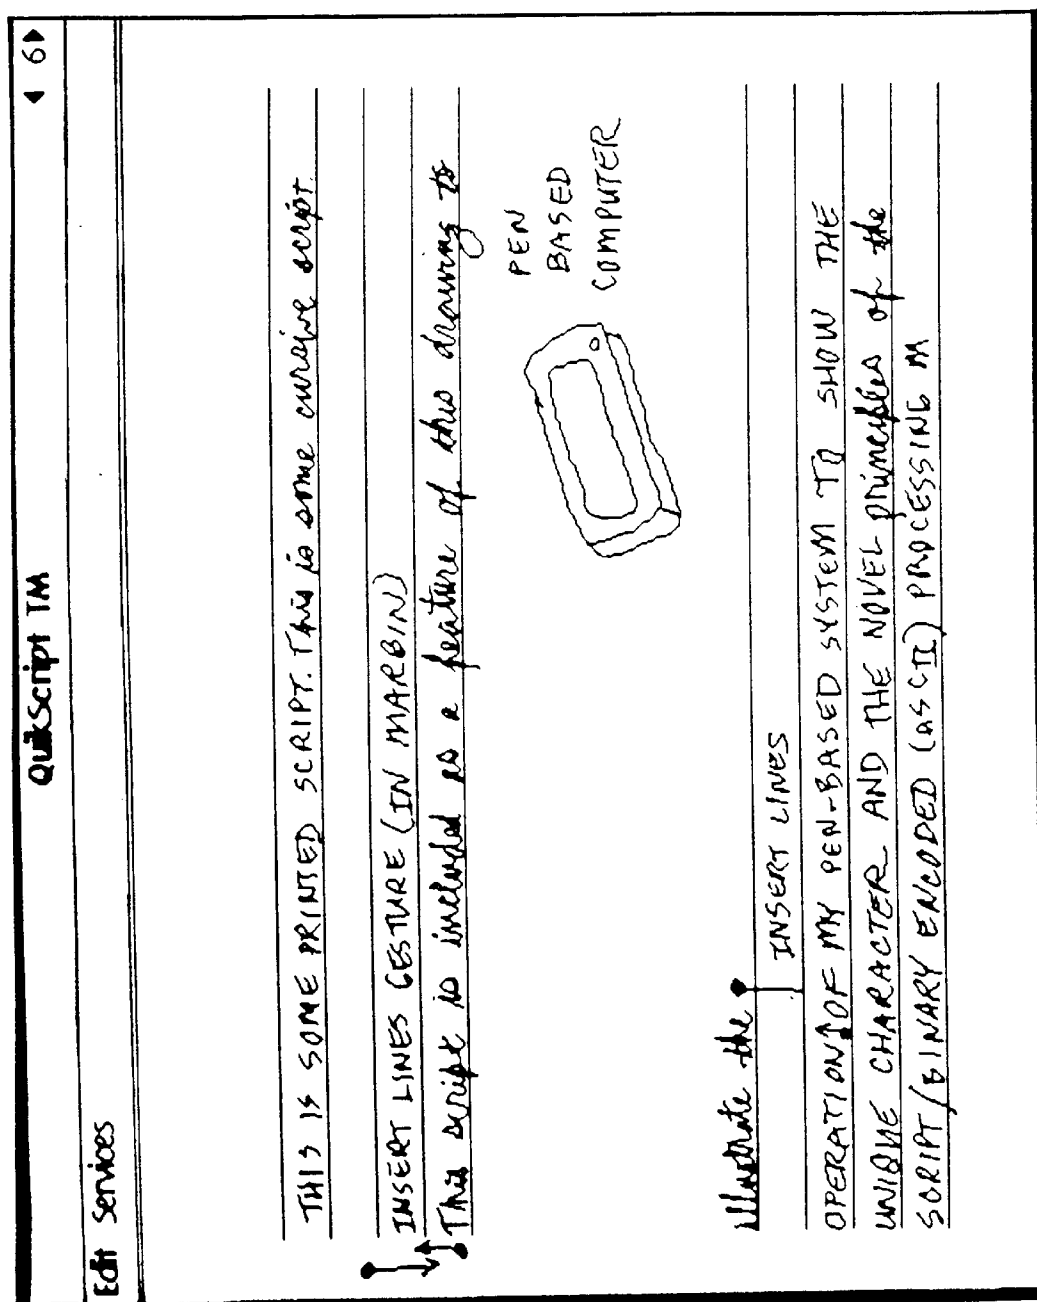 QuikScript TM
◀ 6 ▶
Edit Services
THIS IS SOME PRINTED SCRIPT. This is some cursive script.
INSERT LINES GESTURE (IN MARGIN)
This script is included as a feature of this drawing to
PEN
BASED
COMPUTER
illustrate the
INSERT LINES
OPERATION OF MY PEN-BASED SYSTEM TO SHOW THE
UNIQUE CHARACTER AND THE NOVEL principles of the
SCRIPT/BINARY ENCODED (ASCII) PROCESSING M